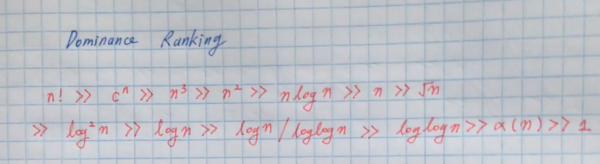 Dominance Ranking
n! >> cⁿ >> n³ >> n² >> n log n >> n >> √n
>> log²n >> log n >> log n / log log n >> log log n >> α(n) >> 1